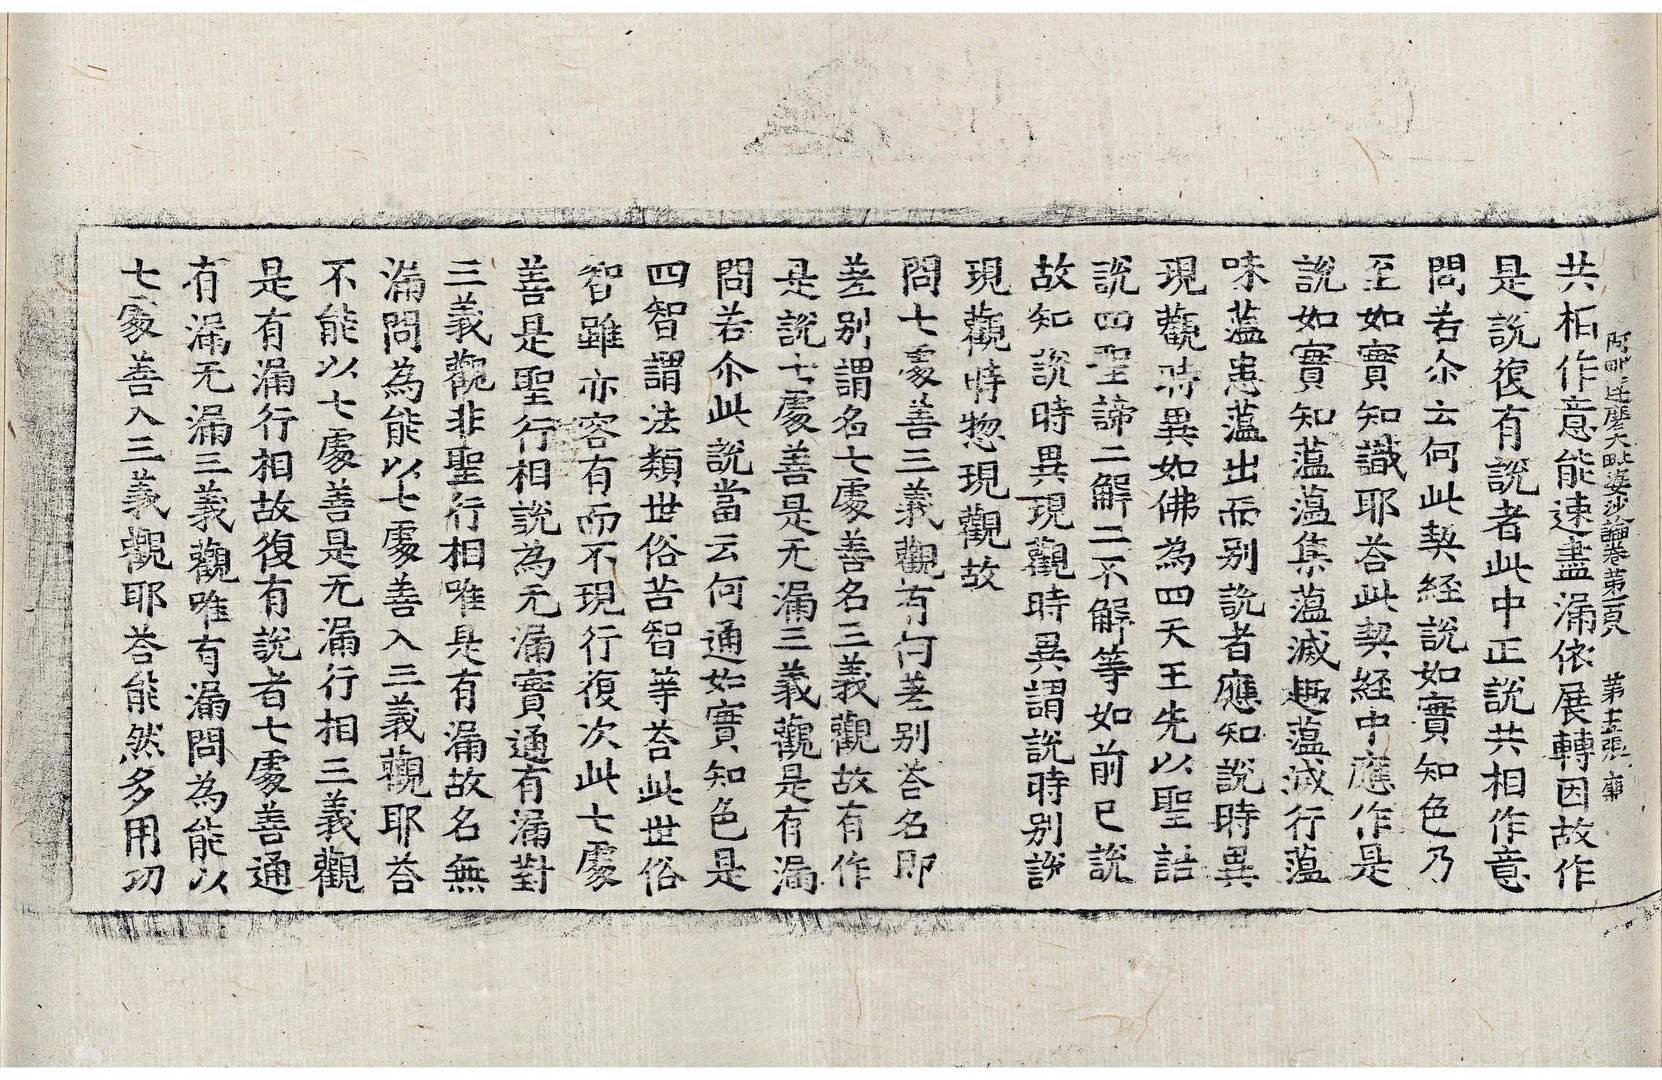 阿毗達磨大毗婆沙論卷第一百八　第十五張　廟
共相作意能速盡漏依展轉因故作
是說復有說者此中正說共相作意
問若尒云何此契經說如實知色乃
至如實知識耶荅此契經中應作是
說如實知薀薀集薀滅趣薀滅行薀
味薀患薀出而别說者應知說時異
現觀時異如佛為四天王先以聖語
說四聖諦二解二不解等如前已說
故知說時異現觀時異謂說時别說
現觀時惣現觀故
問七處善三義觀有何差别荅名即
差别謂名七處善名三義觀故有作
是說七處善是无漏三義觀是有漏
問若尒此說當云何通如實知色是
四智謂法類世俗苦智等荅此世俗
智雖亦容有而不現行復次此七處
善是聖行相說為无漏實通有漏對
三義觀非聖行相唯是有漏故名無
漏問為能以七處善入三義觀耶荅
不能以七處善是无漏行相三義觀
是有漏行相故復有說者七處善通
有漏无漏三義觀唯有漏問為能以
七處善入三義觀耶荅能然多用功